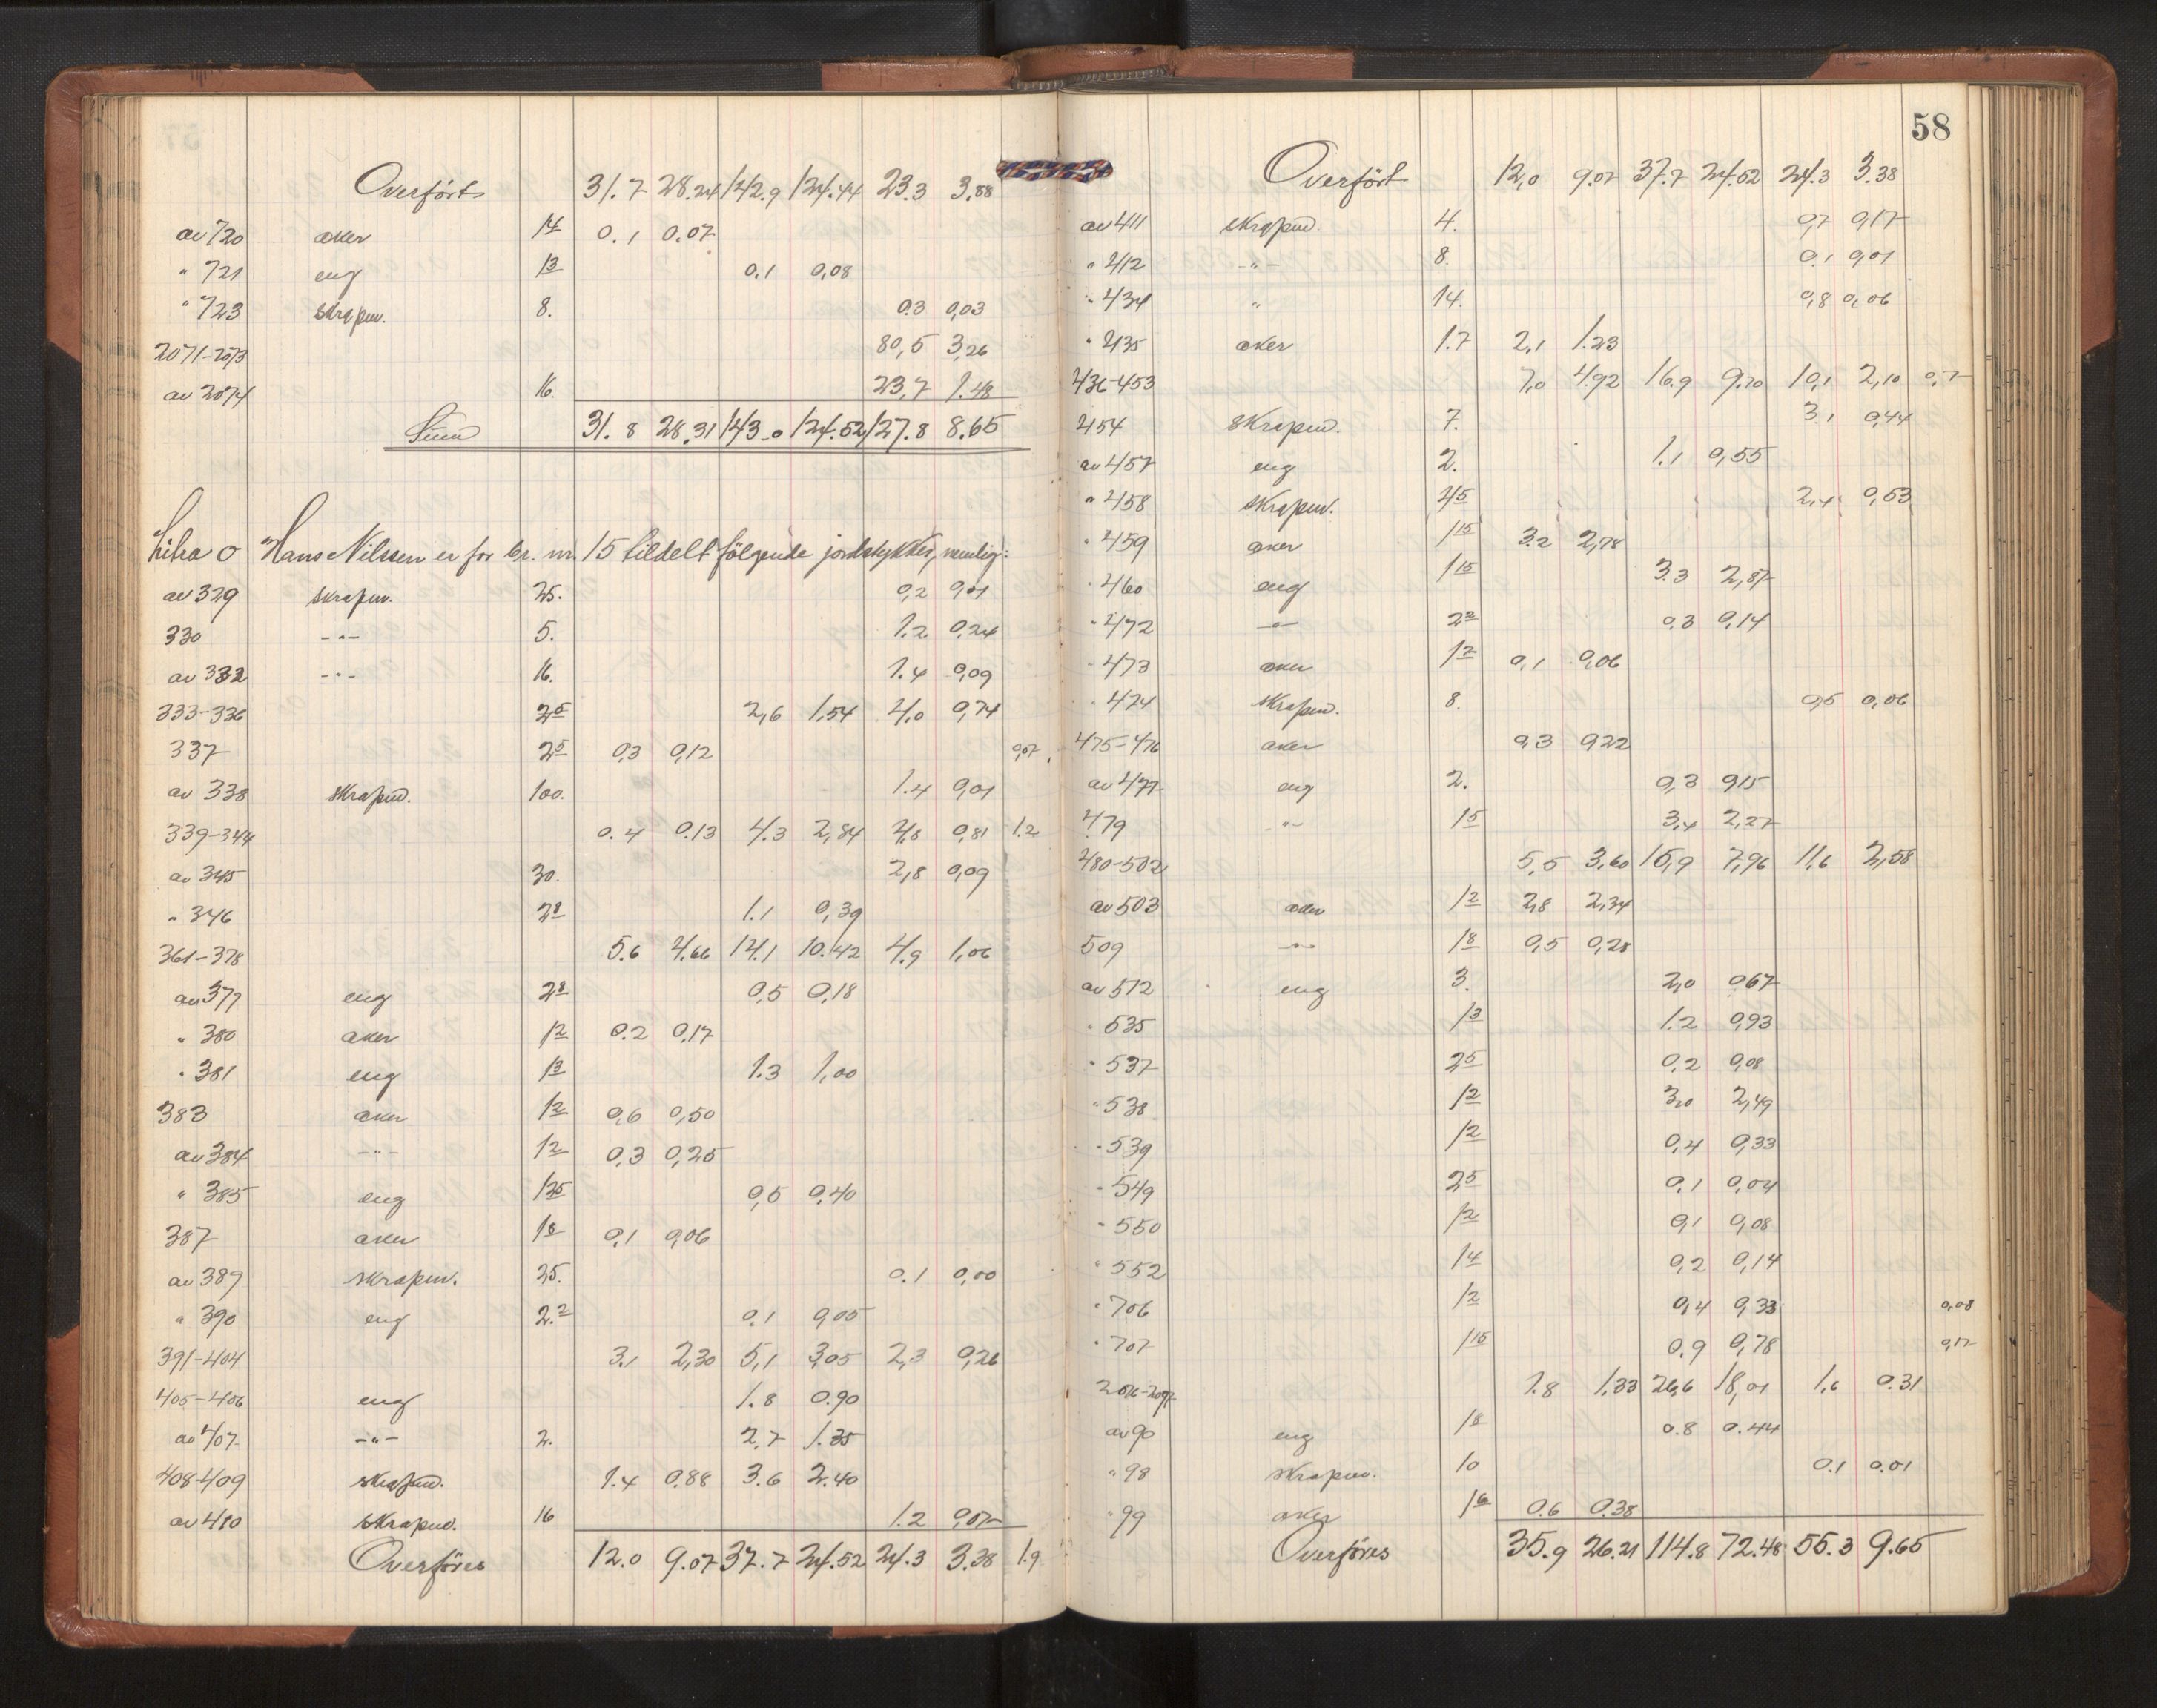 Overført 31.7 28.24 142.9 124.44 23.3 3.88
av 720 aker 14 0.1 0.07
" 721 eng 13 0.1 0,08
" 723 skrapm. 8. 0.3 0,03
2071-2073 80,5 3,26
av 2074 16. 23,7 1.48
Sum 31.8 28.31 143.0 124.52 127.8 8.65
Litra o Hans Nilssen er for br. nr. 15 tildelt følgende jordstykker, nemlig:
av 329 skrapm. 25. 0,2 0,01
330 -"- 5. 1.2 0,24
av 332 -"- 16. 1.4 0,09
333-336 25 2,6 1,54 4,0 0,74
337 25 0,3 0,12 0,07
av 338 skrapm. 100. 1.4 0,01
339-344 0.4 0.13 4.3 2,84 4,8 0,81 1.2
av 345 30. 2,8 0,09
" 346 28 1.1 0,39
361-378 5.6 4.66 14.1 10.42 4.9 1,06
av 377 eng 28 0,5 0,18
" 380 aker 12 0.2 0.17
" 381 eng 13 1.3 1,00
383 aker 12 0,6 0,50
av 384 -"- 12 0,3 0,25
" 385 eng 125 0,5 0,40
387 aker 18 0,1 0,06
av 389 skrapm. 25. 0.1 0,00
" 390 eng 2.2 0.1 0,05
391-404 3.1 2,30 5,1 3,05 2,3 0,26
405-406 eng 1.8 0.90
av 407 -"- 2. 2,7 1.35
408-409 skrapm. 1.4 0.88 3.6 2.40
av 410 skrapm. 16 1.2 0,07
Overføres 12.0 9.07 37.7 24.52 24.3 3.38 1.9
58
Overført 12,0 9.07 37.7 24.52 24.3 3.38
av 411 skrapm. 4. 0,7 0,17
" 412 -"- 8. 0.1 0,01
" 434 " 14. 0,8 0,06
" 435 aker 1.7 2,1 1.23
436-453 7,0 4.92 16.9 9.70 10,1 2,10 0,7
454 skrapm. 7. 3.1 0,44
av 457 eng 2. 1.1 0,55
" 458 skrapm. 45 2,4 0,53
" 459 aker 115 3.2 2,78
" 460 eng 115 3.3 2,87
" 472 -"- 22 0.3 0,14
" 473 aker 17 0,1 0,06
" 474 skrapm. 8. 0,5 0,06
475-476 aker 0,3 0,22
av 477 eng 2. 0,3 0,15
479 -"- 15 3,4 2,27
480-502 5,5 3,60 15,9 7,96 11,6 2,58
av 503 aker 12 2,8 2,34
509 -"- 18 0,5 0,28
av 512 eng 3. 2,0 0,67
" 535 13 1.2 0,93
" 537 25 0,2 0,08
" 538 12 3,0 2,49
" 539 12 0,4 0,33
" 549 25 0,1 0,04
" 550 12 0,1 0,08
" 552 14 0,2 0,14
" 706 12 0,4 0,33 0,08
" 707 115 0.9 0,78 0,12
1.8 1,33 26,6 18,01 1,6 0.31
av 90 eng 18 0.8 0.44
" 98 skrapm. 10 0.1 0.01
" 99 aker 16 0.6 0.38
Overføres 35.9 26.21 114.8 72.48 55.3 9.65